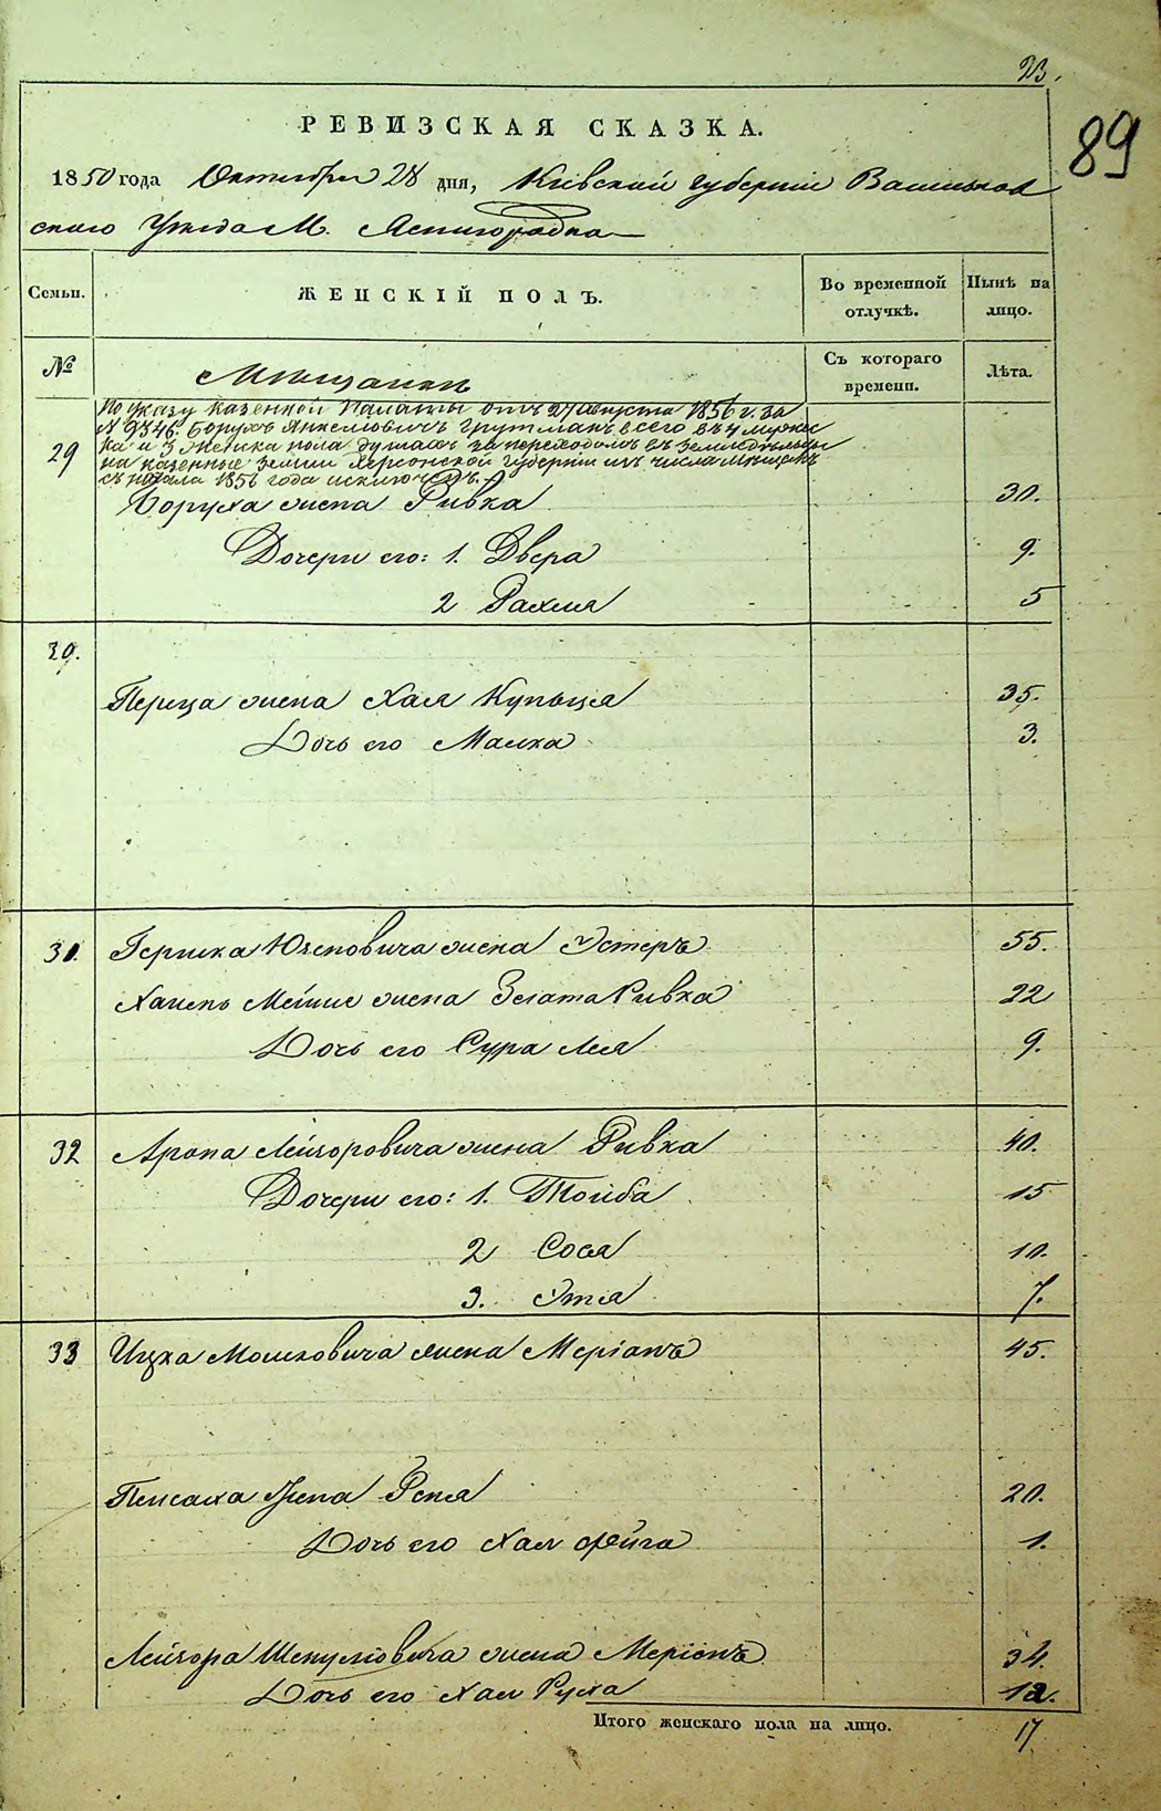 23.
89
РЕВИЗСКАЯ СКАЗКА.
1850 года Октября 28 дня, Кіевской губерніи Васильков
скаго Уезда М. Ясногородка
Семьи. ЖЕНСКІЙ ПОЛЪ. Во временной отлучкѣ. Нынѣ на лицо.
№ Мѣщанки Съ котораго времени. Лѣта.
По указу Казенной Палаты отъ 27 августа 1856 г. за
№ 9346. Борухъ Янкелювичъ Грутманъ всего въ 4 мужес
ка и 3 женска пола душахъ за переходомъ въ земледѣльцы
29 на казенные земли Херсонской губерніи изъ числа мѣщанъ
съ начала 1856 года исключенъ.
Боруха жена Ривка 30.
Дочери его: 1. Двера 9.
2 Рахля 5
30.
Перца жена Хая Купыця 35.
Дочь его Малка 3.
31. Гершка Юзеповича жена Эстеръ 55.
Хаимъ Мейше жена Злата Ривка 22
Дочь его Сура Лея 9.
32 Арона Лейзоровича жена Ривка 40.
Дочери его: 1. Тойба 15
2 Сося 10.
3. Этя 7.
33 Ицка Мошковича жена Меріамъ 45.
Пейсаха жена Репя 20.
Дочь его Хая Фейга 1.
Лейзора Шепулювича жена Меріамъ 34.
Дочь его Хая Руха 12.
Итого женскаго пола на лицо. 17